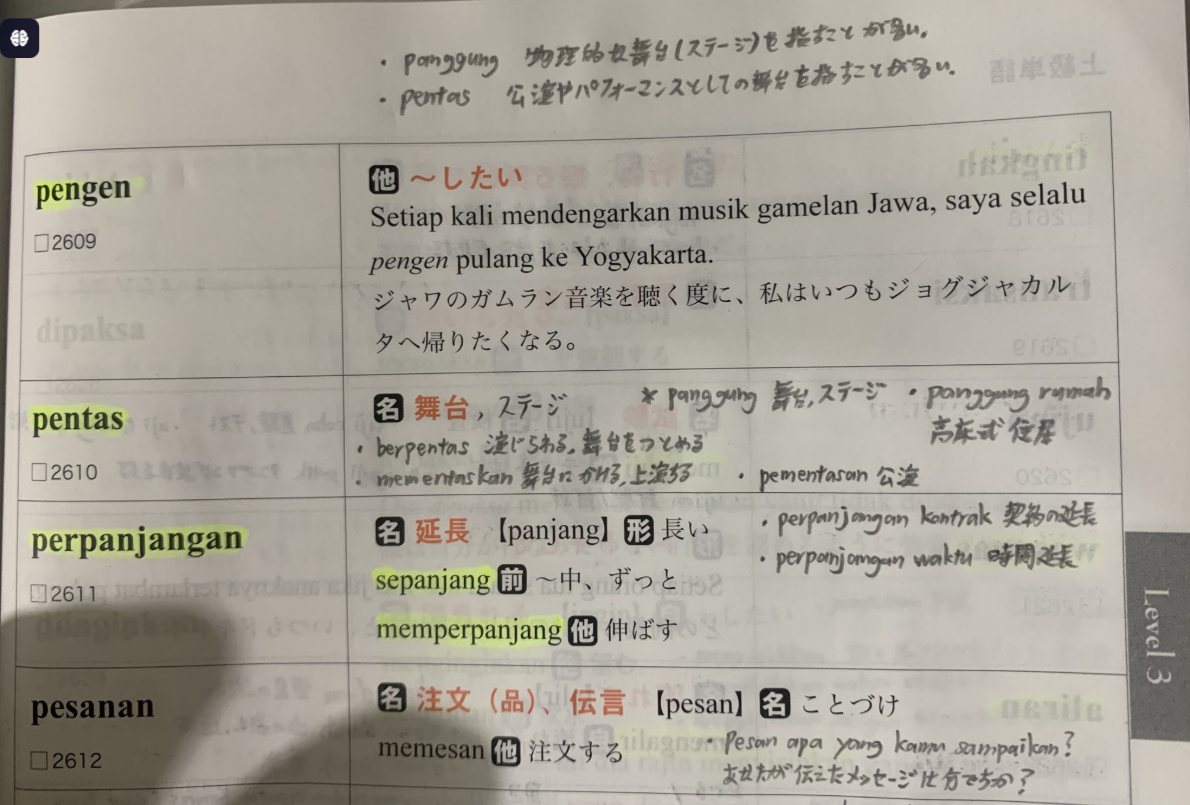 ・panggung 物理的な舞台(ステージ)を指すことが多い。
・pentas 公演やパフォーマンスとしての舞台を指すことが多い。
pengen
□2609
他 〜したい
Setiap kali mendengarkan musik gamelan Jawa, saya selalu
pengen pulang ke Yogyakarta.
ジャワのガムラン音楽を聴く度に、私はいつもジョグジャカル
タへ帰りたくなる。
pentas
□2610
名 舞台, ステージ
* panggung 舞台,ステージ ・panggung rumah
高床式住居
・berpentas 演じられる,舞台をつとめる
・mementaskan 舞台にかける,上演する ・pementasan 公演
perpanjangan
□2611
名 延長 【panjang】 形 長い
・perpanjangan kontrak 契約の延長
・perpanjangan waktu 時間延長
sepanjang 前 〜中、ずっと
memperpanjang 他 伸ばす
pesanan
□2612
名 注文(品)、伝言 【pesan】 名 ことづけ
memesan 他 注文する
・Pesan apa yang kamu sampaikan?
あなたが伝えたメッセージは何ですか?
Level 3